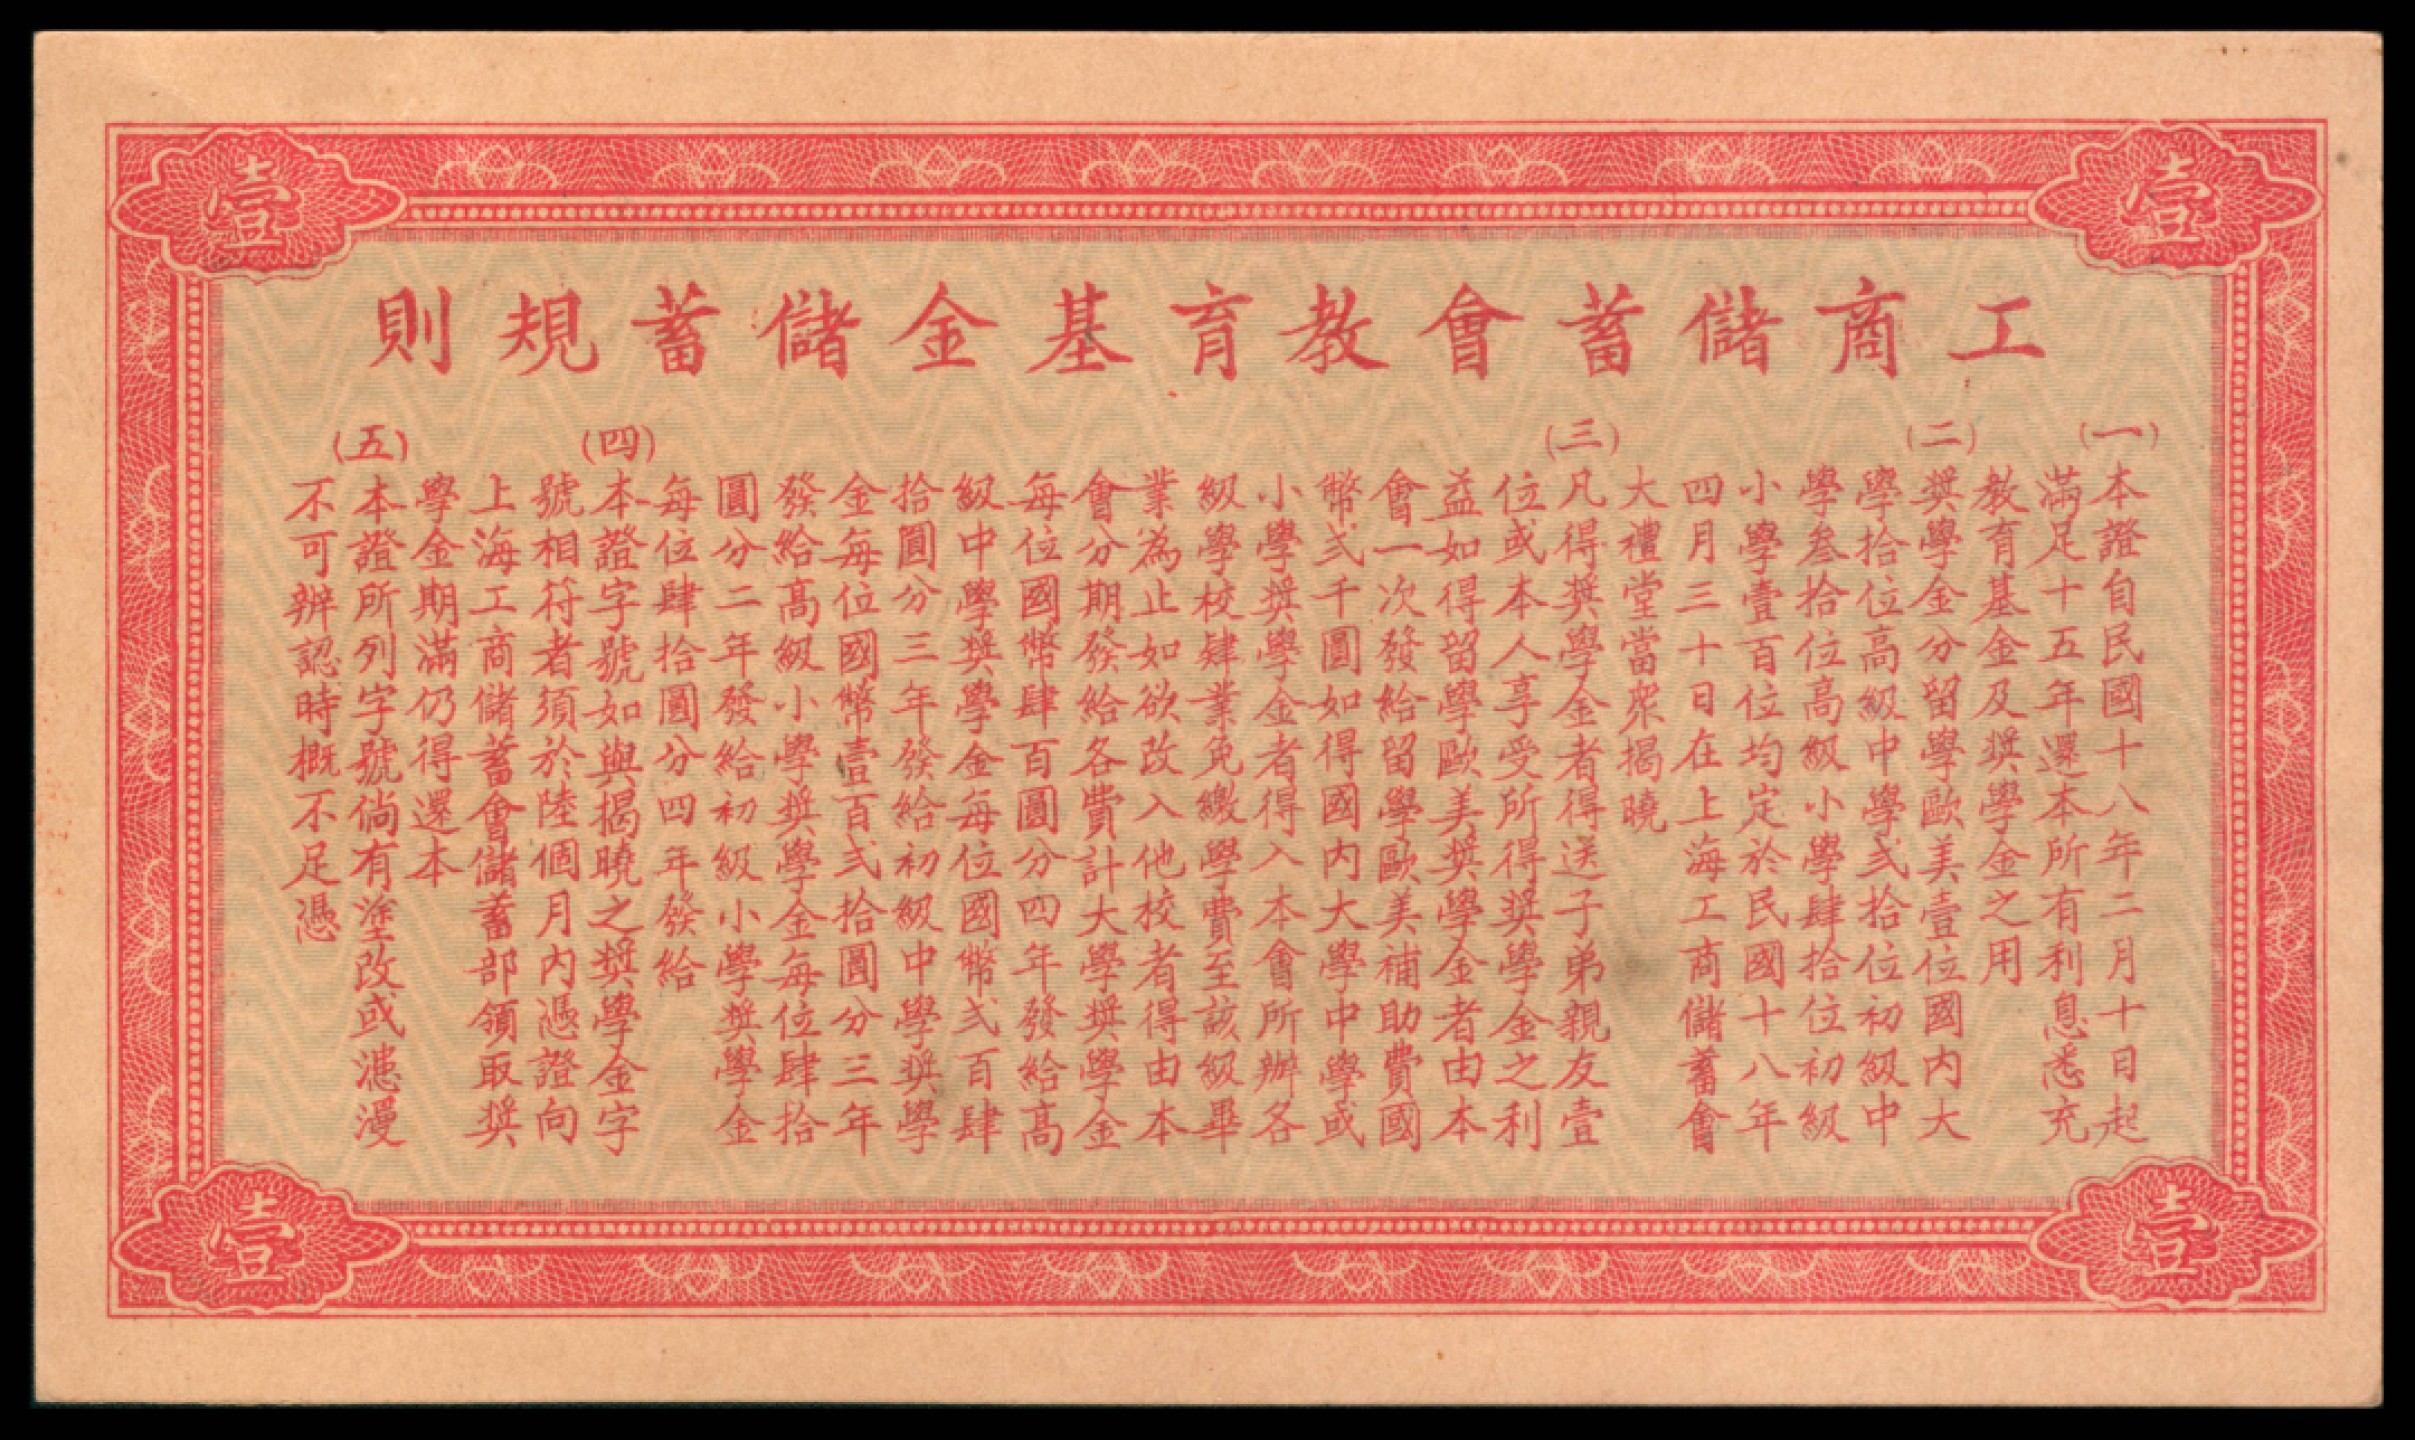 壹
壹
工商儲蓄會教育基金儲蓄規則
(一)
本證自民國十八年二月十日起
滿足十五年還本所有利息悉充
教育基金及奬學金之用
(二)
奬學金分留學歐美壹位國內大
學拾位高級中學弍拾位初級中
學叁拾位高級小學肆拾位初級
小學壹百位均定於民國十八年
四月三十日在上海工商儲蓄會
大禮堂當眾揭曉
(三)
凡得奬學金者得送子弟親友壹
位或本人享受所得奬學金之利
益如得留學歐美奬學金者由本
會一次發給留學歐美補助費國
幣弍千圓如得國內大學中學或
小學奬學金者得入本會所辦各
級學校肄業免繳學費至該級畢
業為止如欲改入他校者得由本
會分期發給各費計大學奬學金
每位國幣肆百圓分四年發給高
級中學奬學金每位國幣弍百肆
拾圓分三年發給初級中學奬學
金每位國幣壹百弍拾圓分三年
發給高級小學奬學金每位肆拾
圓分二年發給初級小學奬學金
每位肆拾圓分四年發給
(四)
本證字號如與揭曉之奬學金字
號相符者須於陸個月內憑證向
上海工商儲蓄會儲蓄部領取奬
學金期滿仍得還本
(五)
本證所列字號倘有塗改或漶漫
不可辨認時概不足憑
壹
壹